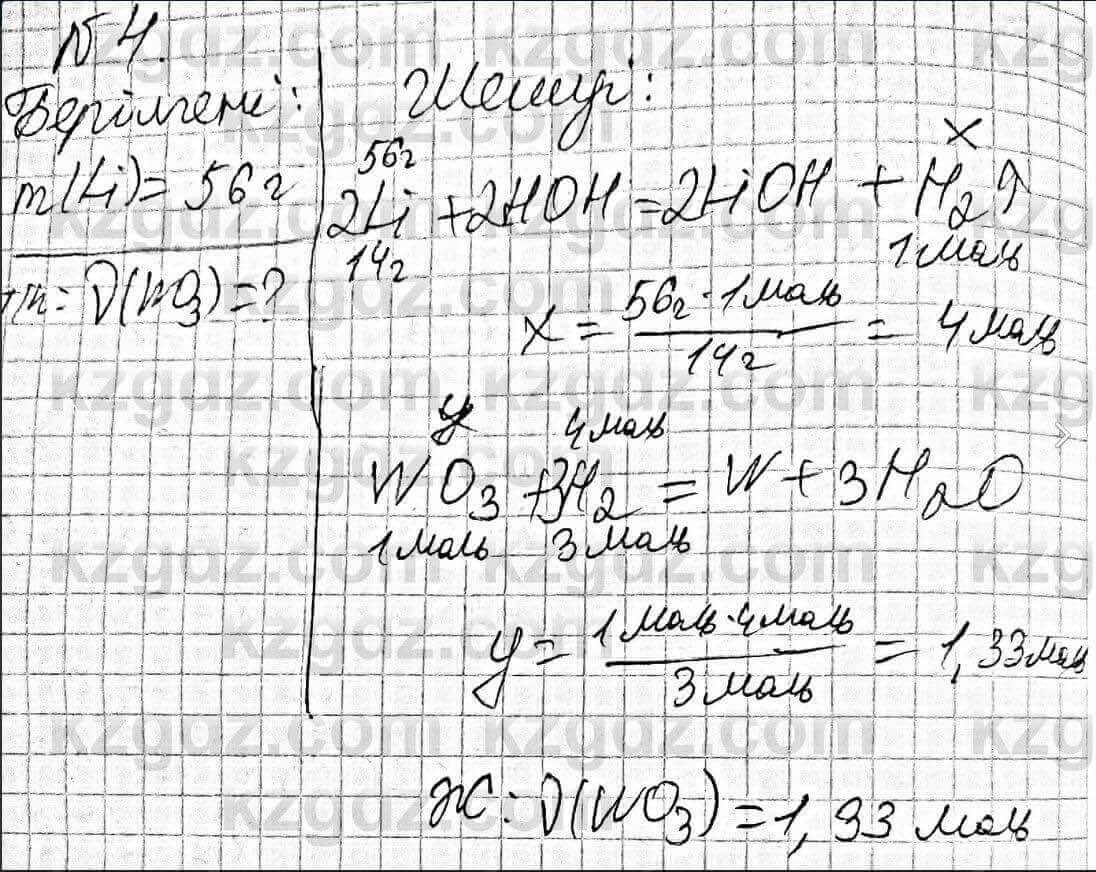 №4.
Берілгені:
m(Li)= 56г
т/к: ν(WO3)=?
Шешуі:
56г x
2Li +2HOH =2LiOH + H2↑
14г 1моль
x = 56г · 1моль / 14г = 4моль
y 4моль
WO3 +3H2 = W + 3H2O
1моль 3моль
y = 1моль·4моль / 3моль = 1,33моль
Ж: ν(WO3) =1,33 моль
kzgdz.com